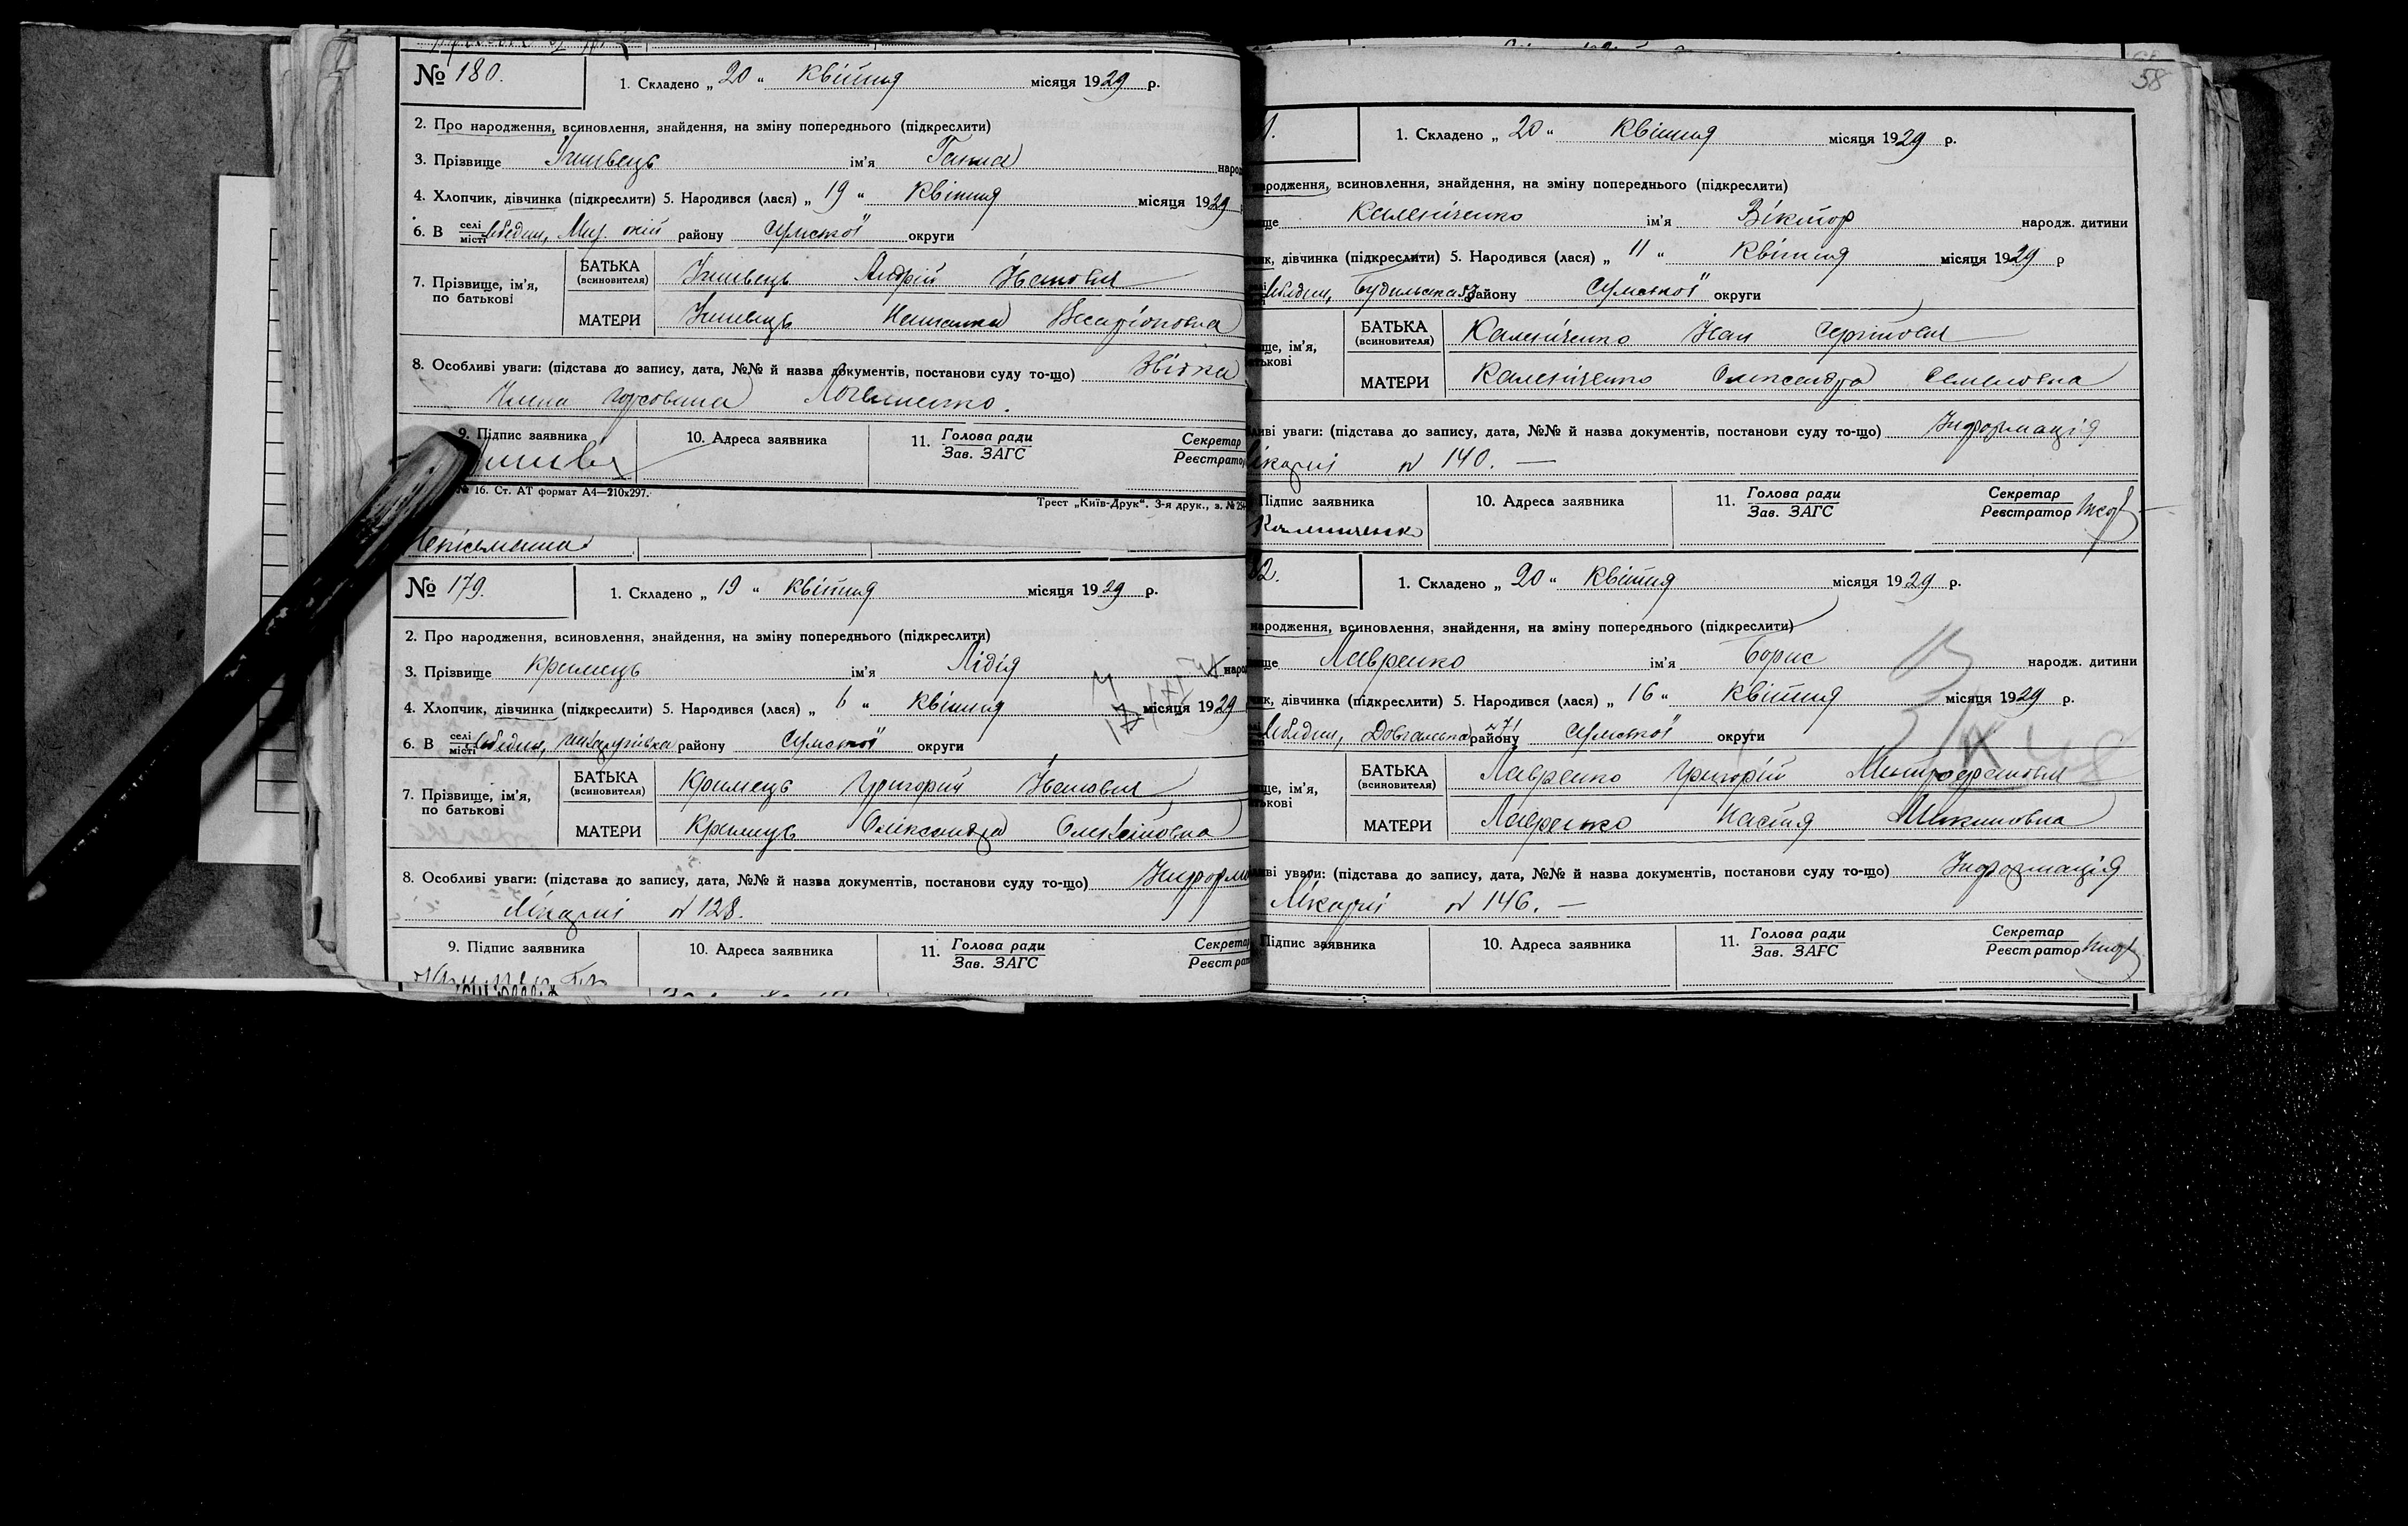 № 180.
1. Складено „ 20 “ Квітня місяця 1929 р.
2. Про народження, всиновлення, знайдення, на зміну попереднього (підкреслити)
3. Прізвище ім'я Ганна народ
4. Хлопчик, дівчинка (підкреслити) 5. Народився (лася) „ 19 “ Квітня місяця 1929
6. В селі місті Лебедин, району Сумської округи
7. Прізвище, ім'я, по батькові
БАТЬКА (всиновителя) Андрій Іванович
МАТЕРИ
8. Особливі уваги: (підстава до запису, дата, №№ й назва документів, постанови суду то-що) Звістка
9. Підпис заявника
10. Адреса заявника
11. Голова ради Зав. ЗАГС
Секретар Реєстратор
№ 16. Ст. АТ формат А4—210х297.
Трест „Київ-Друк“. 3-я друк., з. №
Неписьменна
№ 179.
1. Складено „ 19 “ Квітня місяця 1929 р.
2. Про народження, всиновлення, знайдення, на зміну попереднього (підкреслити)
3. Прізвище Кримець ім'я Лідія народ
4. Хлопчик, дівчинка (підкреслити) 5. Народився (лася) „ 6 “ Квітня місяця 1929
6. В селі місті Лебедин, району Сумської округи
7. Прізвище, ім'я, по батькові
БАТЬКА (всиновителя) Кримець Григорий Іванович
МАТЕРИ Кримець Олександра Олексіївна
8. Особливі уваги: (підстава до запису, дата, №№ й назва документів, постанови суду то-що) Информ
Лікарні № 128.
9. Підпис заявника
10. Адреса заявника
11. Голова ради Зав. ЗАГС
Секретар Реєстрат
58
1.
1. Складено „ 20 “ Квітня місяця 1929 р.
народження, всиновлення, знайдення, на зміну попереднього (підкреслити)
ище Калениченко ім'я Віктор народж. дитини
чик, дівчинка (підкреслити) 5. Народився (лася) „ 11 “ Квітня місяця 1929 р
Лебедин, Будильська 57 району Сумської округи
ище, ім'я, батькові
БАТЬКА (всиновителя) Калениченко Іван Сергійович
МАТЕРИ Калениченко Олександра Семеновна
ливі уваги: (підстава до запису, дата, №№ й назва документів, постанови суду то-що) Информація
ікарні № 140. —
Підпис заявника
Калиниченко
10. Адреса заявника
11. Голова ради Зав. ЗАГС
Секретар Реєстратор
82.
1. Складено „ 20 “ Квітня місяця 1929 р.
народження, всиновлення, знайдення, на зміну попереднього (підкреслити)
ище Лавренко ім'я Борис народж. дитини
чик, дівчинка (підкреслити) 5. Народився (лася) „ 16 “ Квітня місяця 1929 р.
Лебедин, Довгалька № 71 району Сумської округи
ище, ім'я, батькові
БАТЬКА (всиновителя) Лавренко Григорій Митрофанович
МАТЕРИ Лавренко Настя Микитовна
ливі уваги: (підстава до запису, дата, №№ й назва документів, постанови суду то-що) Информація
Лікарні № 146. —
Підпис заявника
10. Адреса заявника
11. Голова ради Зав. ЗАГС
Секретар Реєстратор